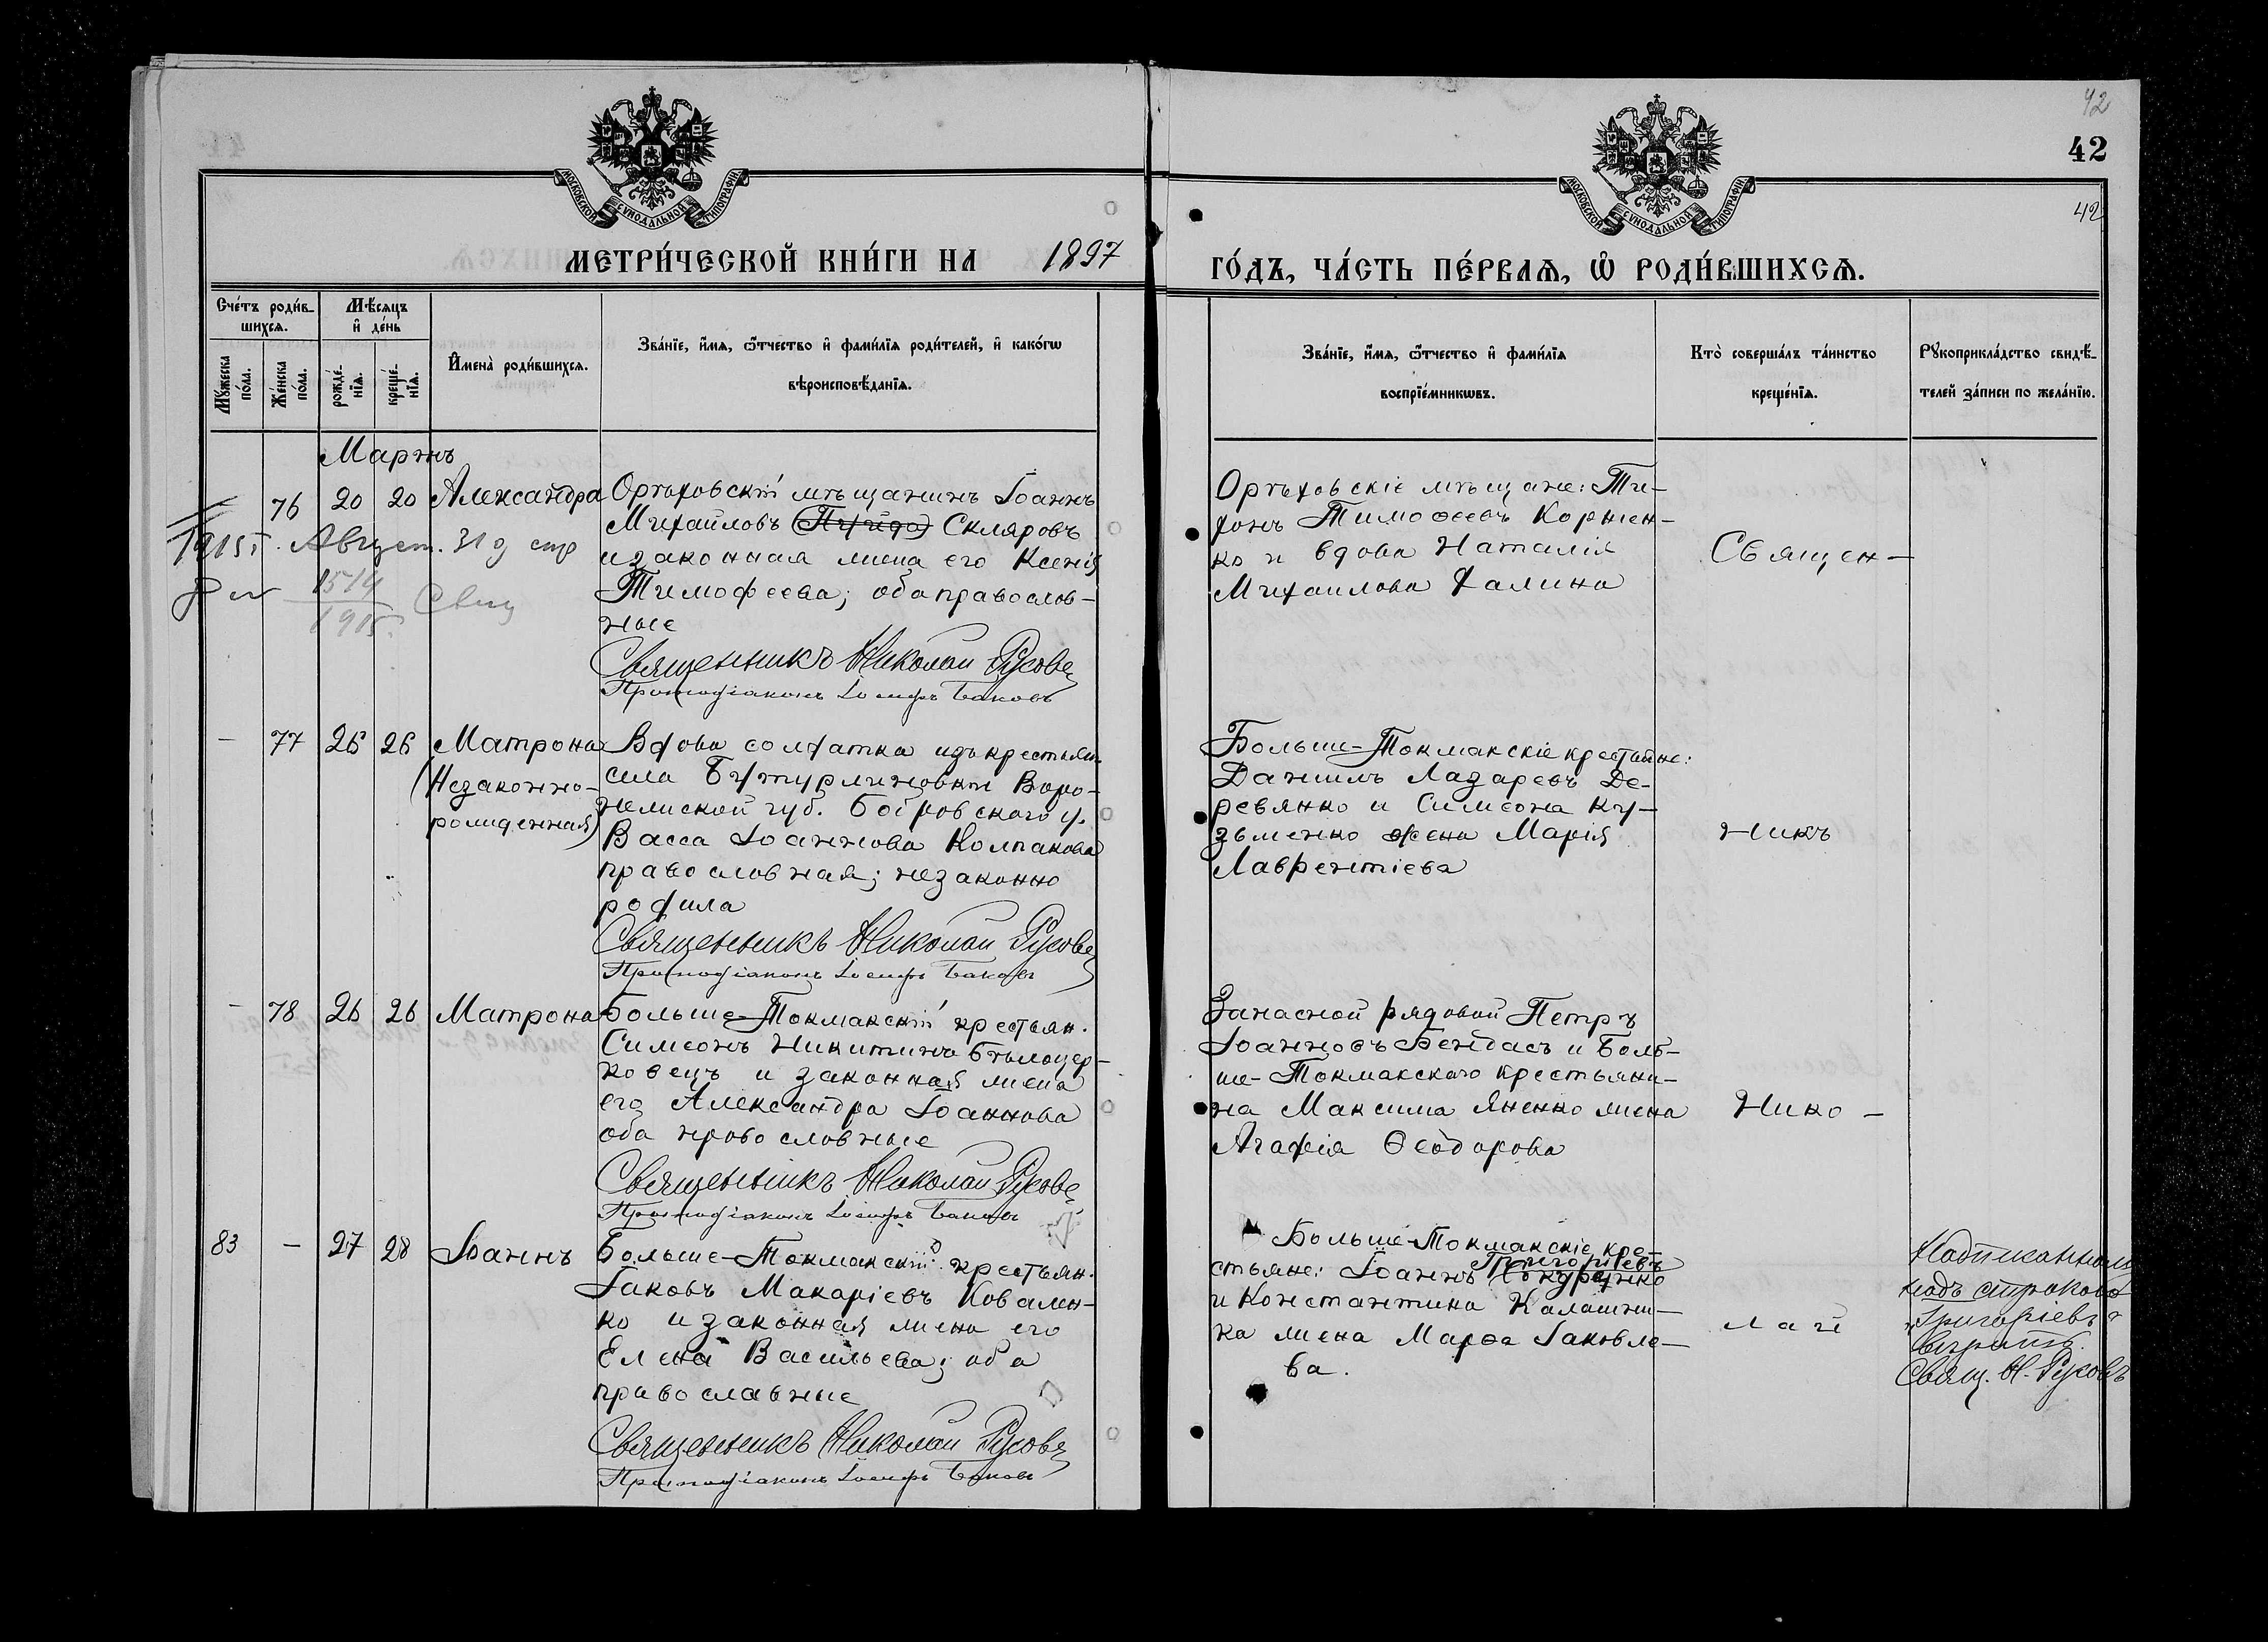 42
42
42
МОСКОВСКОЙ СѴНОДАЛЬНОЙ ТИПОГРАФІИ
МОСКОВСКОЙ СѴНОДАЛЬНОЙ ТИПОГРАФІИ
МЕТРИ́ЧЕСКОЙ КНИ́ГИ НА 1897
ГО́ДЪ, ЧА́СТЬ ПЕ́РВАѦ, Ѡ҆ РОДИ́ВШИХСѦ.
Сче́тъ роди́в-
шихсѧ.
Мꙋжеска
по́ла.
Же́нска
по́ла.
Мѣ́сѧцъ
и҆ де́нь
рожде́-
нїѧ.
креще́-
нїѧ.
И҆мена̀ роди́вшихсѧ.
Зва́нїе, и҆́мѧ, ѻ҆́тчество и҆ фами́лїѧ роди́телей, и҆ како́гѡ
вѣроисповѣ́данїѧ.
Зва́нїе, и҆́мѧ, ѻ҆́тчество и҆ фами́лїѧ
воспрїе́мникѡвъ.
Кто̀ соверша́лъ та́инство
креще́нїѧ.
Рꙋкоприкла́дство свидѣ́-
телей за́писи по жела́нїю.
Мартъ
76 20 20 Александра
Орѣховскій мѣщанинъ Іоаннъ
Михайловъ Скляровъ
и законная жена его Ксенія
Тимофеева; оба православ-
ные
Священникъ Николай Русовъ
Протодіаконъ Іосифъ Баковъ
1915 г. Август. 31 д
1514
1915.
Орѣховскіе мѣщане: Ти-
хонъ Тимоѳеевъ Коржен-
ко и вдова Наталія
Михаилова Фалина
Священ-
- 77 26 26 Матрона
(Незаконно-
рожденная)
Вдова солдатка изъ крестьян.
села Бутурлиновки Воро-
нежской губ. Бобровского у.
Васса Іоаннова Колпакова
православная; незаконно
родила
Священникъ Николай Русовъ
Протодіаконъ Іосифъ Баковъ
Больше-Токмакскіе крестьяне:
Даниилъ Лазаревъ Де-
ревянко и Симеона Ку-
зьменко жена Марія
Лаврентіева
никъ
- 78 26 26 Матрона
Больше-Токмакскій крестьян.
Симеонъ Никитинъ Бѣлоцер-
ковецъ и законная жена
его Александра Іоаннова
оба православные
Священникъ Николай Русовъ
Протодіаконъ Іосифъ Баковъ
Запасной рядовой Петръ
Іоанновъ Бендасъ и Боль-
ше-Токмакского крестьяни-
на Максима Яненко жена
Агафія Ѳеодорова
Нико-
83 - 27 28 Іоаннъ
Больше-Токмакскій крестьян.
Іаковъ Макаріевъ Ковален-
ко и законная жена его
Елена Васильева; оба
православные
Священникъ Николай Русовъ
Протодіаконъ Іосифъ Баковъ
Больше-Токмакскіе кре-
Григоріевъ
стьяне: Іоаннъ Сокуренко
и Константина Калашни-
ка жена Марѳа Іаковле-
ва.
лай
Надписанному
надъ строкою
"Григоріевъ"
вѣрить.
Свящ. Н. Русовъ